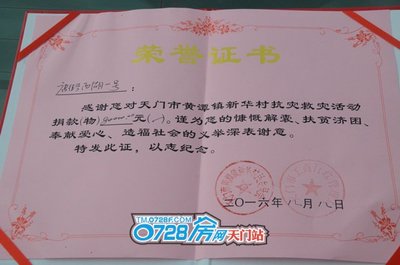 荣誉证书
感谢您对天门市黄潭镇新华村抗灾救灾活动
捐款(物) 元( )。谨为您的慷慨解囊、扶贫济困、
奉献爱心、造福社会的义举深表谢意。
特发此证，以志纪念。
二〇一六年八月八日
TM.0728F.COM
0728房网天门站